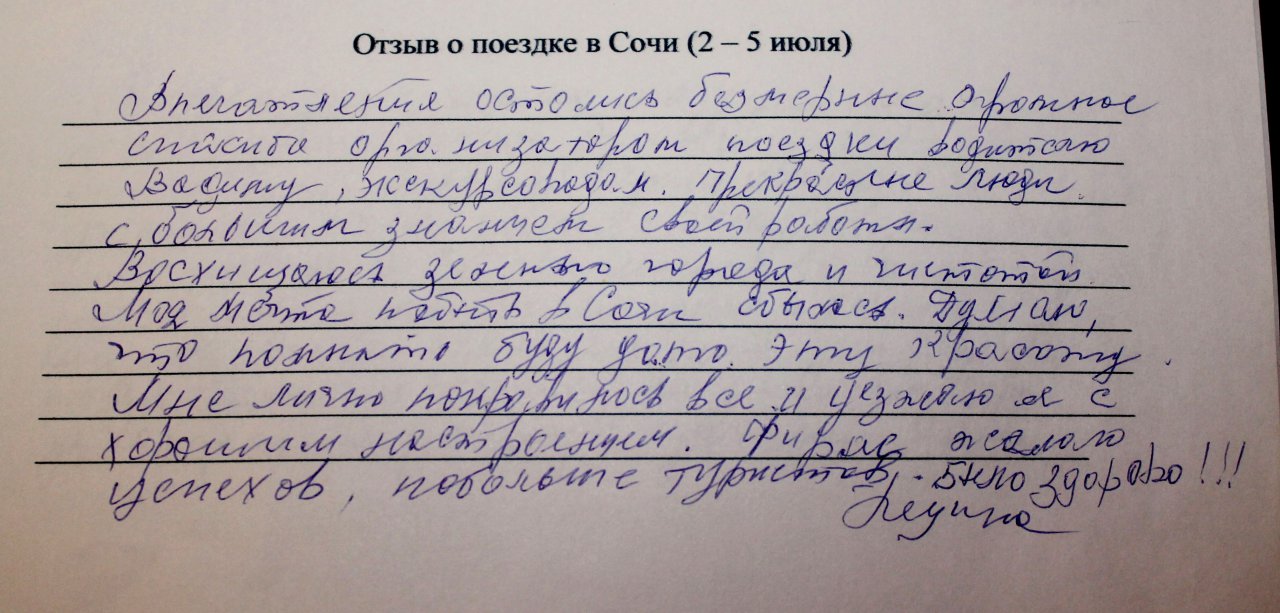 Отзыв о поездке в Сочи (2 – 5 июля)
Впечатления остались безмерные огромное
спасибо организаторам поездки водителю
Вадиму, экскурсоводам. Прекрасные люди
с большим знанием своей работы.
Восхищаюсь зеленью города и чистотой.
Моя мечта побыть в Сочи сбылась. Думаю,
что помнить буду долго эту красоту.
Мне лично понравилось все и уезжаю я с
хорошим настроением. Фирме желаю
успехов, побольше туристов. Было здорово!!!